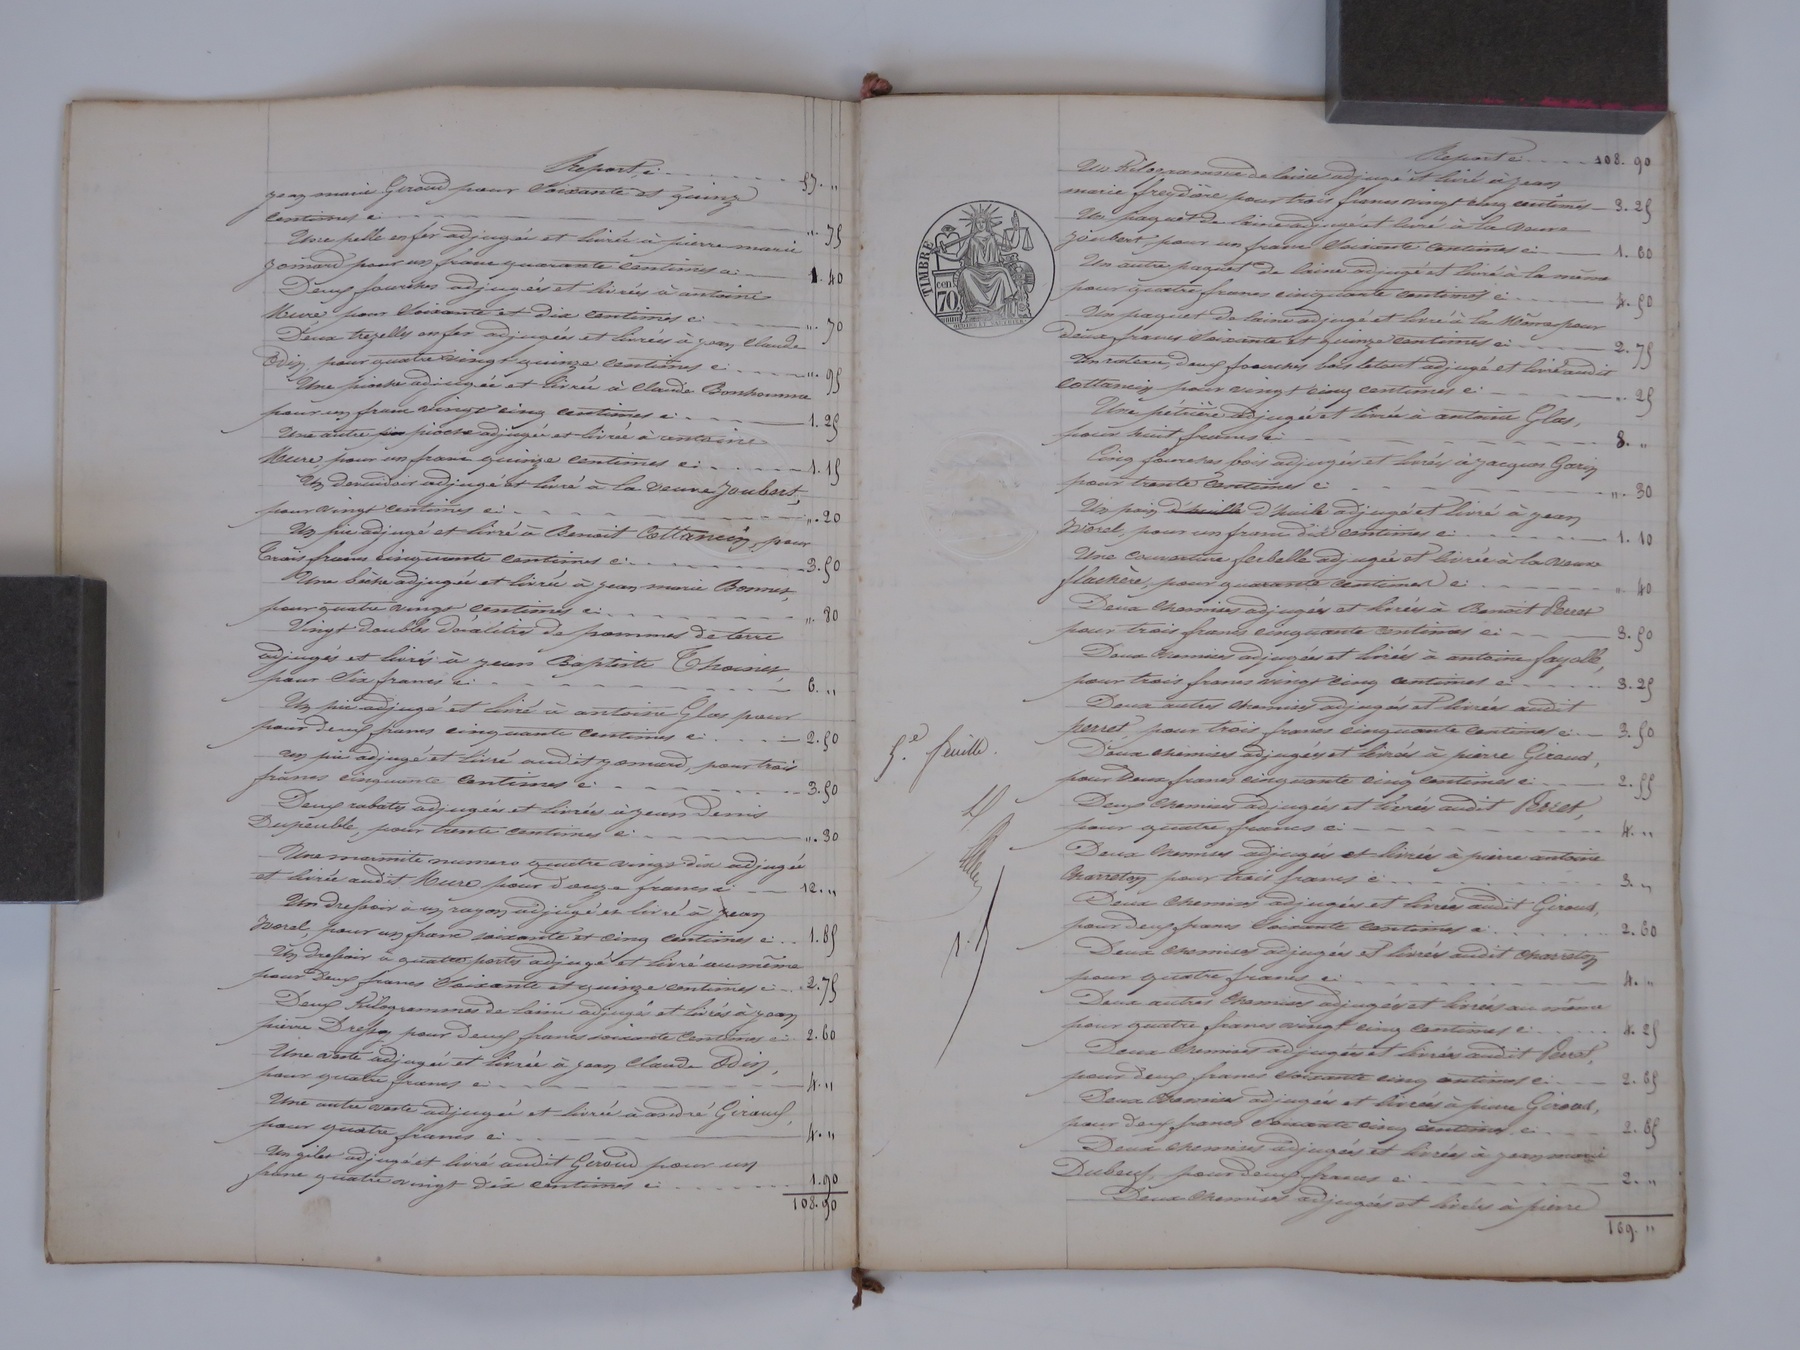 Report, ci 57. "
jean marie Giroud pour soixante et quinze
centimes ci ". 75
Une pelle en fer adjugée et livrée à pierre marie
Jomard pour un franc quarante centimes ci 1. 40
Deux fourches adjugées et livrées à antoine
Mure pour soixante et dix centimes ci ". 70
Deux trezelles en fer adjugées et livrées à jean Claude
Odin, pour quatre vingt quinze centimes ci ". 95
Une pioche adjugée et livrée à Claude Bonhomme
pour un franc vingt cinq centimes, ci 1. 25
Une autre pioche adjugée et livrée à antoine
Mure, pour un franc quinze centimes ci 1. 15
Un adjugé et livré à la veuve Joubert,
pour vingt centimes ci ". 20
Un pic adjugé et livré à Benoit Cottancin, pour
trois francs cinquante centimes ci 3. 50
Une bêche adjugée et livrée à jean marie Bonnet,
pour quatre vingt centimes ci ". 80
Vingt doubles décalitres de pommes de terre
adjugés et livrés à jean Baptiste Thoinet,
pour six francs ci 6. "
Un pic adjugé et livré à antoine Glas pour
pour deux francs cinquante centimes ci 2. 50
un pic adjugé et livré audit jomard, pour trois
francs cinquante centimes ci 3. 50
Deux rabots adjugés et livrés à jean Denis
Dupeuble, pour trente centimes ci ". 30
Une marmite numero quatre vingt dix adjugée
et livrée audit Mure pour douze francs ci 12. "
Un dressoir à un rayon adjugé et livré à jean
Morel, pour un franc soixante et cinq centimes ci 1. 65
Un dressoir à quatre portes adjugé et livré au même
pour deux francs soixante et quinze centimes ci 2. 75
Deux Kilogrammes de laine adjugés et livrés à jean
pierre pour deux francs soixante centimes ci 2. 60
Une veste adjugée et livrée à jean Claude Odin,
pour quatre francs ci 4. "
Une autre veste adjugée et livrée à andré Giroud,
pour quatre francs ci 4. "
Un gilet adjugé et livré audit Giroud pour un
franc quatre vingt dix centimes ci 1. 90
108. 90
Report ci 108. 90
Un Kilogramme de laine adjugé et livré à jean
marie freydière pour trois francs vingt cinq centimes 3. 25
Un paquet de laine adjugé et livré à la veuve
Joubert pour un franc soixante centimes ci 1. 60
Un autre paquet de laine adjugé et livré à la même
pour quatre francs cinquante centimes ci 4. 50
Un paquet de laine adjugé et livré à la Même pour
deux francs soixante et quinze centimes ci 2. 75
Un rateau, deux fourches bois le tout adjugé et livré audit
Cottancin pour vingt cinq centimes ci ". 25
Une pétrière adjugée et livrée à antoine Glas,
pour huit francs ci 8. "
Cinq fourches bois adjugées et livrées à jacques Garin
pour trente centimes ci ". 30
Un pain d'huille d'huile adjugé et livré à jean
Morel, pour un franc dix centimes ci 1. 10
Une couverture adjugée et livrée à la veuve
flachère, pour quarante centimes ci ". 40
Deux chemises adjugées et livrées à Benoit Perret
pour trois francs cinquante centimes ci 3. 50
Deux chemises adjugées et livrées à antoine fayolle,
pour trois francs vingt cinq centimes ci 3. 25
Deux autres chemises adjugées et livrées audit
perret, pour trois francs cinquante centimes ci 3. 50
Deux chemises adjugées et livrées à pierre Giroud,
pour deux francs cinquante cinq centimes ci 2. 55
Deux chemises adjugées et livrées audit Perret,
pour quatre francs ci 4. "
Deux chemises adjugées et livrées à pierre antoine
Charreton pour trois francs ci 3. "
Deux chemises adjugées et livrées audit Giroud,
pour deux francs soixante centimes ci 2. 60
Deux chemises adjugées et livrées audit Charreton
pour quatre francs ci 4. "
Deux autres chemises adjugées et livrées au même
pour quatre francs vingt cinq centimes ci 4. 25
Deux chemises adjugées et livrées audit Perret,
pour deux francs soixante cinq centimes ci 2. 65
Deux chemises adjugées et livrées à pierre Giroud,
pour deux francs soixante cinq centimes, ci 2. 65
Deux chemises adjugées et livrées à jean marie
Dubeuf, pour deux francs ci 2. "
Deux chemises adjugées et livrées à pierre
169. "
TIMBRE
70 cen
5.e feuille.